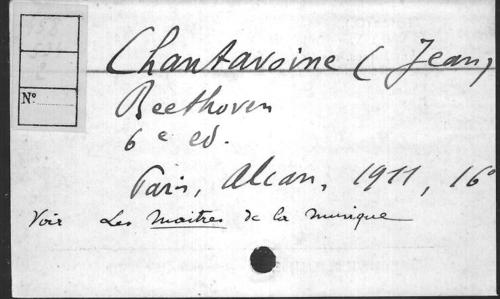 Chantavoine (Jean)
Beethoven
6e ed.
Paris, Alcan, 1911, 16°
Voir Les Maitres de la musique
No